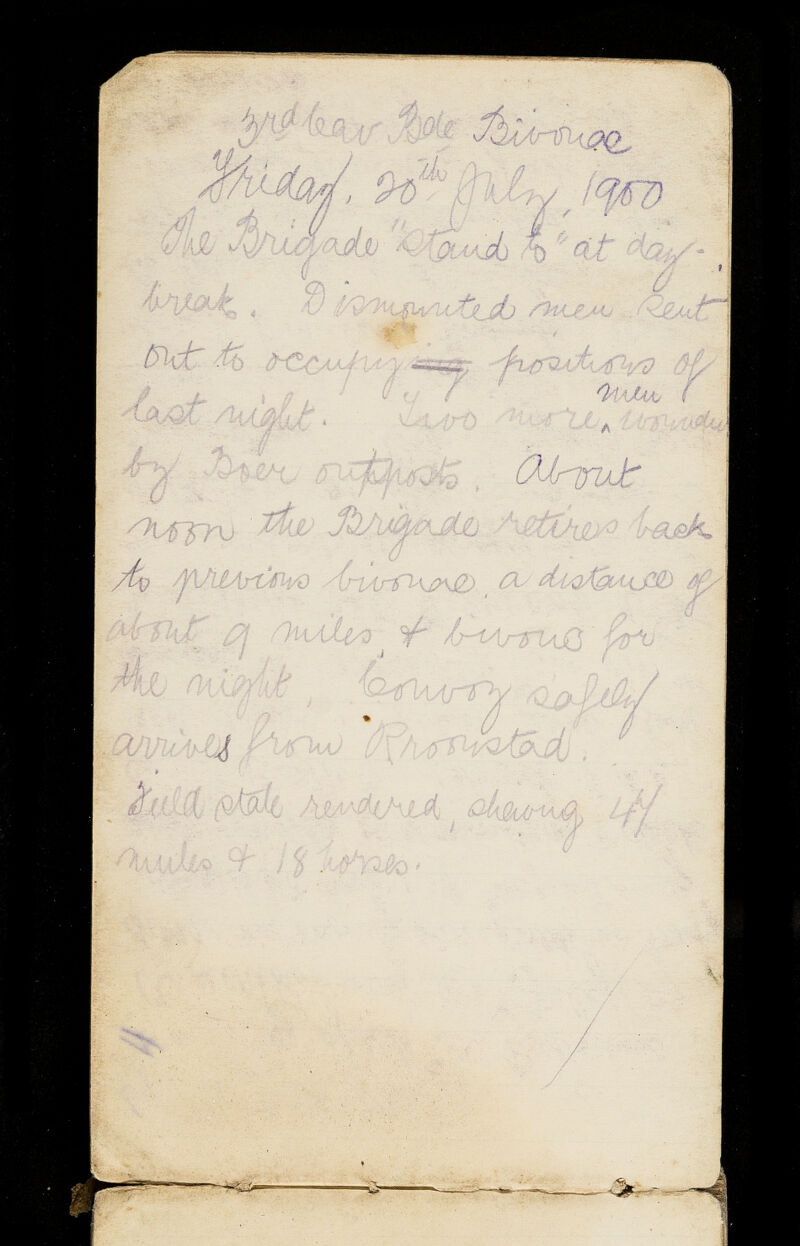 3rd Cav Bde Bivouac
Friday, 20th July, 1900
The Brigade "stand to" at day-
break. Dismounted men sent
out to occupy positions of
last night. Two more men wounded
by Boer outposts. About
noon the Brigade retires back
to previous bivouac, a distance of
about 9 miles, & bivouac for
the night. Convoy safely
arrives from Kroonstad.
Field state rendered, shewing 47
mules & 18 horses.